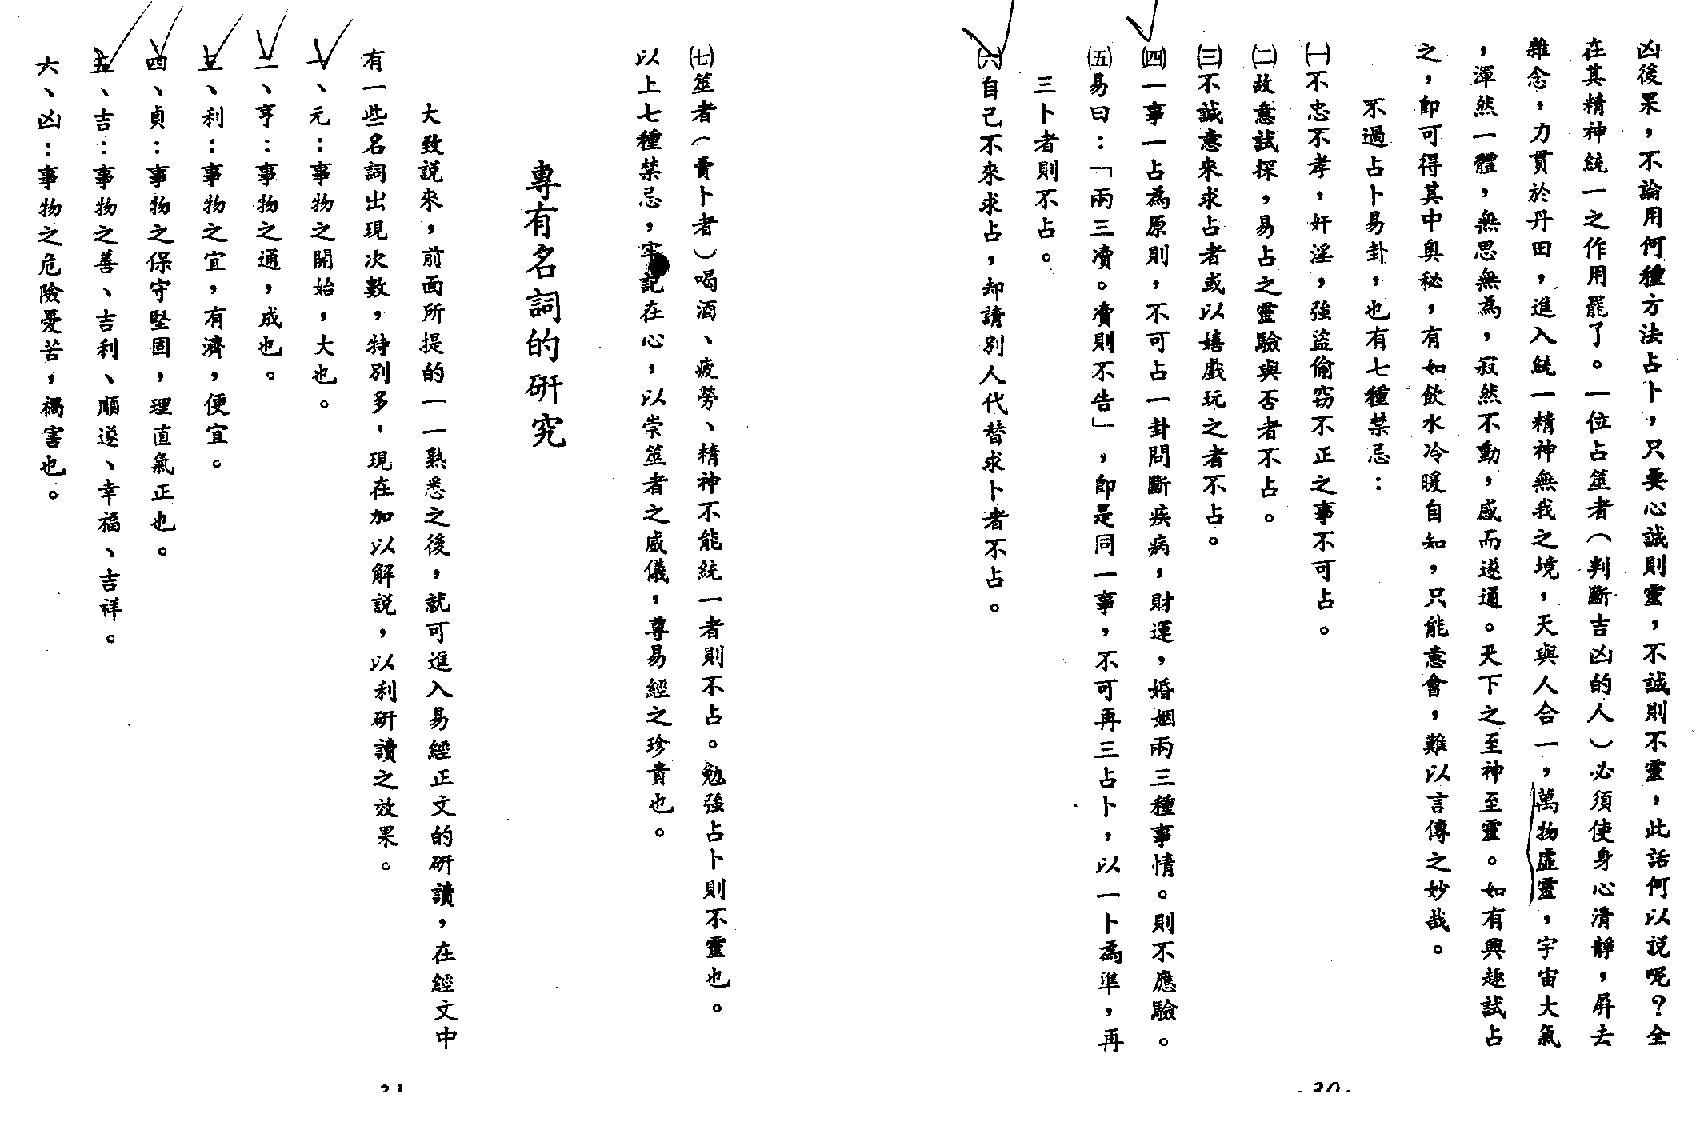 凶後果，不論用何種方法占卜，只要心誠則靈，不誠則不靈，此話何以說呢？全
在其精神統一之作用罷了。一位占筮者（判斷吉凶的人）必須使身心清靜，屏去
雜念，力貫於丹田，進入統一精神無我之境，天與人合一，萬物虛靈，宇宙大氣
，渾然一體，無思無為，寂然不動，感而遂通。天下之至神至靈。如有興趣試占
之，即可得其中奧秘，有如飲水冷暖自知，只能意會，難以言傳之妙哉。
不過占卜易卦，也有七種禁忌：
㈠不忠不孝，奸淫，強盜偷窃不正之事不可占。
㈡故意試探，易占之靈驗與否者不占。
㈢不誠意來求占者或以嬉戲玩之者不占。
㈣一事一占為原則，不可占一卦問斷疾病，財運，婚姻兩三種事情。則不應驗。
㈤易曰：「兩三瀆。瀆則不告」，即是同一事，不可再三占卜，以一卜為準，再
三卜者則不占。
㈥自己不來求占，却請別人代替求卜者不占。
-30-
㈦筮者（賣卜者）喝酒、疲勞、精神不能統一者則不占。勉強占卜則不靈也。
以上七種禁忌，牢記在心，以崇筮者之威儀，尊易經之珍貴也。
專有名詞的研究
大致說來，前面所提的一一熟悉之後，就可進入易經正文的研讀，在經文中
有一些名詞出現次數，特別多，現在加以解說，以利研讀之效果。
一、元：事物之開始，大也。
二、亨：事物之通，成也。
三、利：事物之宜，有濟，便宜。
四、貞：事物之保守堅固，理直氣正也。
五、吉：事物之善、吉利、順遂、幸福、吉祥。
六、凶：事物之危險憂苦，禍害也。
31